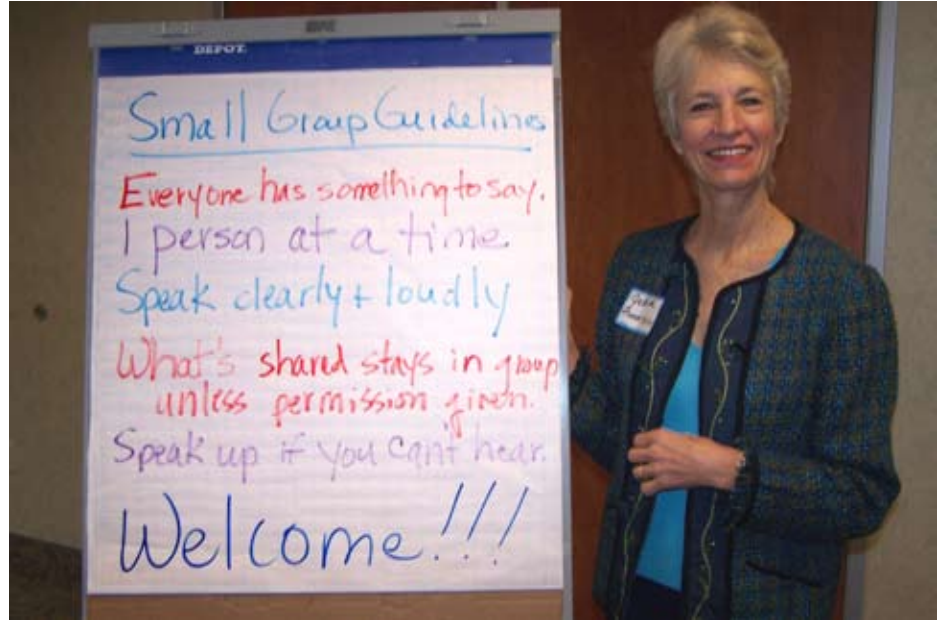 DEPOT
Small Group Guidelines
Everyone has something to say.
1 person at a time
Speak clearly + loudly
What's shared stays in group
unless permission given.
Speak up if you can't hear.
Welcome!!!